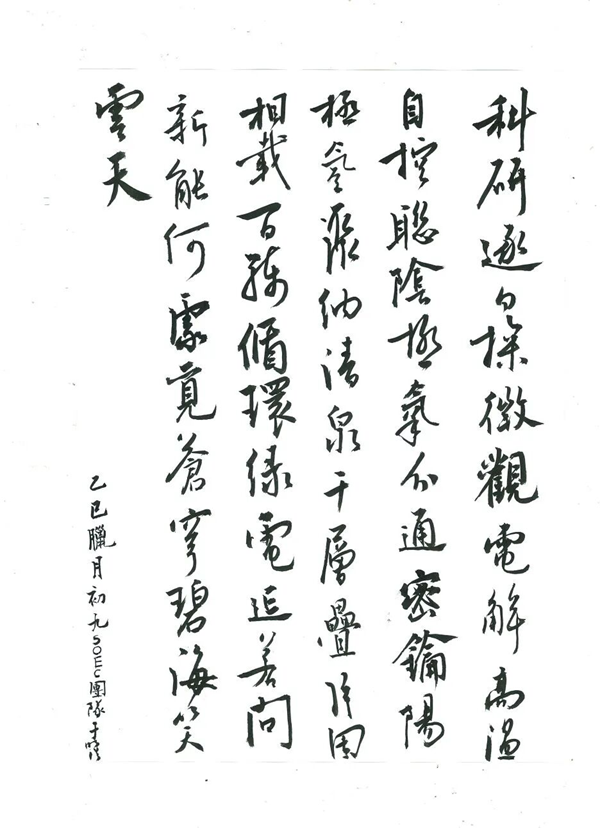 科研逐日探微觀電解高溫
自控聯陰極氣分通密鑰陽
極氫聚納清泉千層疊片
相載百轉循環綠電追若問
新能何處覓蒼穹碧海笑
雲天
乙巳臘月初九SOEC團隊于